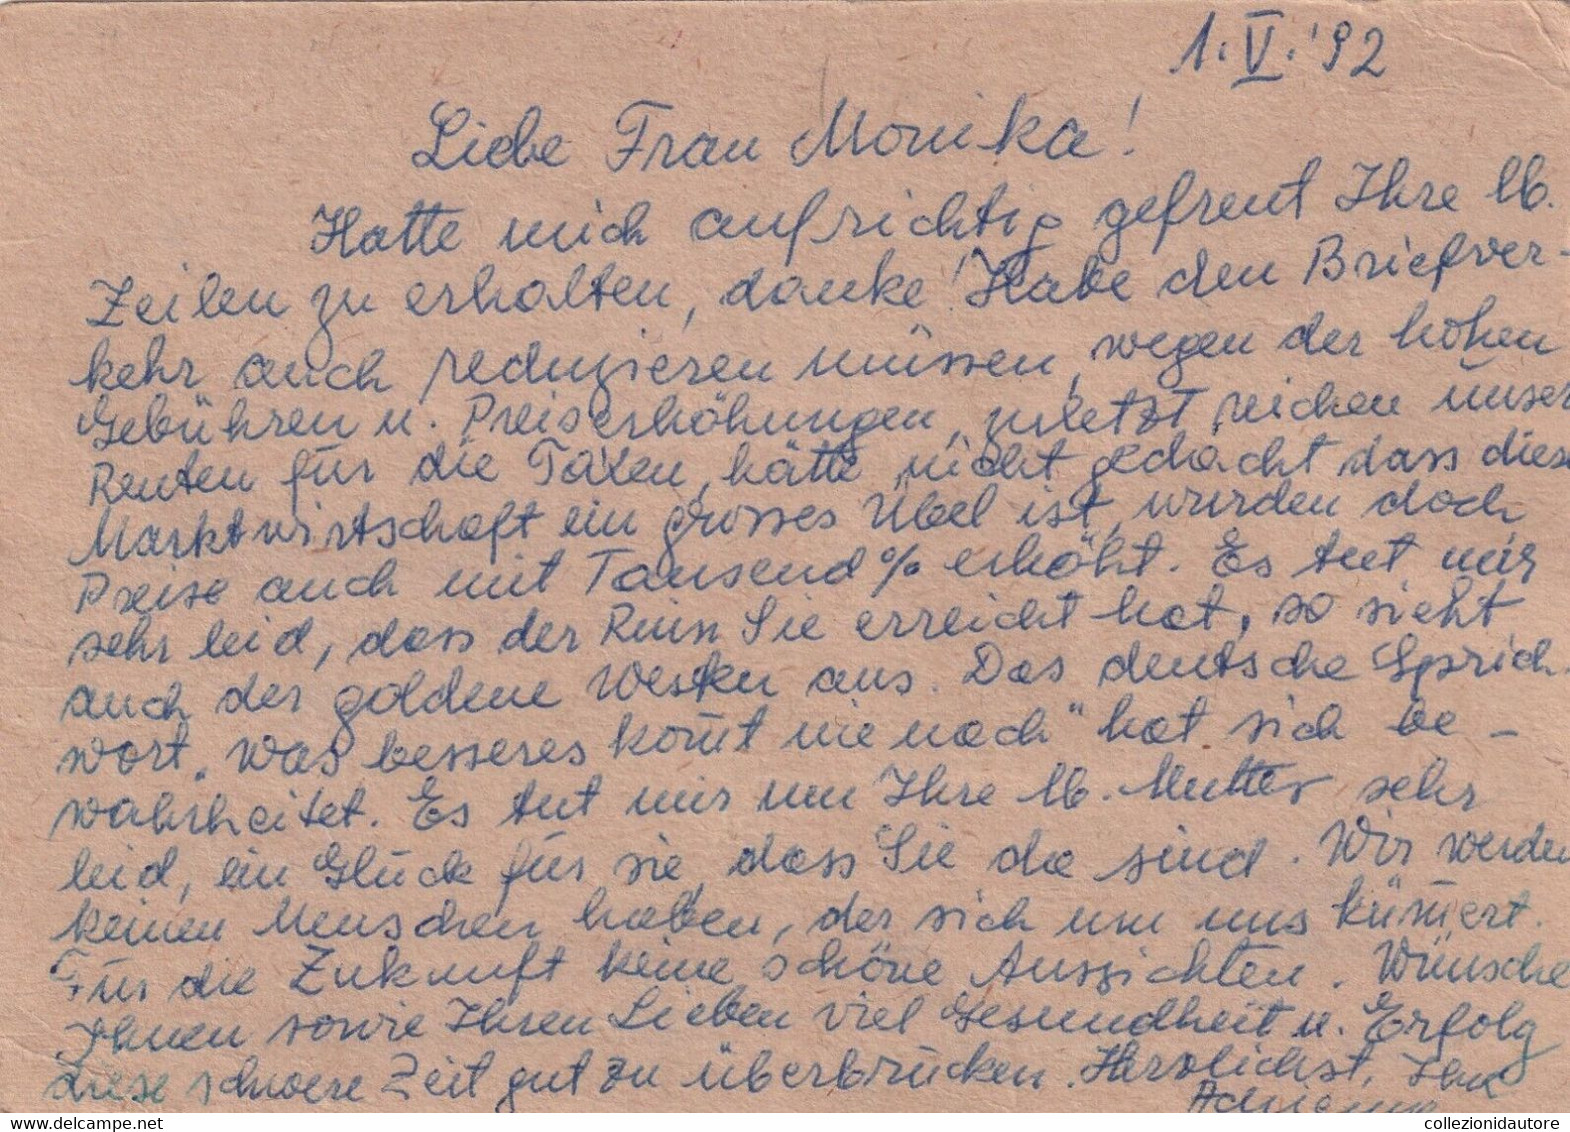 1. V. '92
Liebe Frau Monika!
Hatte mich aufrichtig gefreut Ihre lb.
Zeilen zu erhalten, danke! Habe den Briefver-
kehr auch reduzieren müssen, wegen der hohen
Gebühren u. Preiserhöhungen, zuletzt reichen unser
Renten für die Taxen, hätte nicht gedacht dass diese
Marktwirtschaft ein grosses Übel ist, wurden doch
Preise auch mit Tausend % erhöht. Es tut mir
sehr leid, dass der Ruin Sie erreicht hat, so sieht
auch der goldene Westen aus. Das deutsche Sprich-
wort „was besseres kom̄t nie nach" hat sich be-
wahrheitet. Es tut mir um Ihre lb. Mutter sehr
leid, ein Glück für sie, dass Sie da sind. Wir werden
keinen Menschen haben, der sich um uns küm̄ert.
Für die Zukunft keine schöne Aussichten. Wünsche
Ihnen sowie Ihren Lieben viel Gesundheit u. Erfolg
diese schwere Zeit gut zu überbrücken. Herzlichst, Ihre
collezionidautore